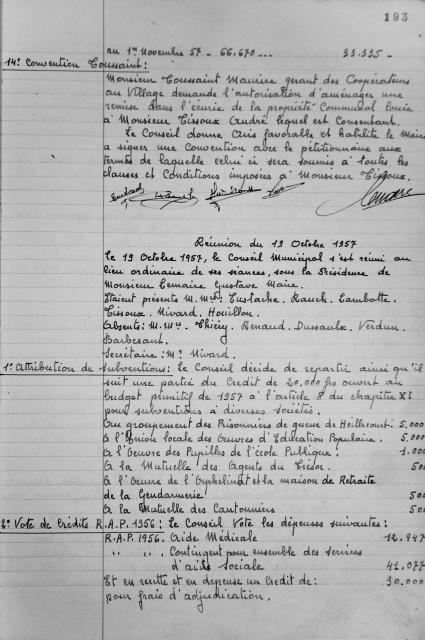 193
au 1er Novembre 57 - 66.670 --- 33.335 -
14° Convention Toussaint:
Monsieur Toussaint Maurice gerant des Coopérateurs
au Village demande l'autorisation d'aménager une
remise dans l'écurie de la propriété Communal louée
à Monsieur Tissoux André lequel est Consentant.
Le Conseil donne avis favorable et habilite le Maire
a signer une Convention avec le pétitionnaire aux
termes de laquelle celui ci sera soumis à toutes les
clauses et Conditions imposées à Monsieur Tissoux.
Réunion du 19 Octobre 1957
Le 19 Octobre 1957, le Conseil Municipal s'est réuni au
lieu ordinaire de ses séances, sous la Présidence de
Monsieur Lemaire Gustave Maire.
Etaient présents M.Mrs. Eustache. Rauch. Lambotte.
Tissoux. Nivard. Houillon.
Absents: M.Mrs. Thiéry. Renaud. Dussaulx. Verdun.
Barbesant.
Secrétaire: Mr Nivard.
1° Attribution de subventions: Le Conseil décide de repartir ainsi qu'il
suit une partie du Credit de 20.000 frs ouvert au
budget primitif de 1957 à l'article 8 du chapitre XI
pour subventions à diverses sociétés.
Au groupement des Prisonniers de guerre de Heillecourt. 5.000
A l'Union locale des Oeuvres d'Education Populaire. 5.000
A l'Oeuvre des Pupilles de l'école Publique: 1.000
A la Mutuelle des Agents du Trésor. 500
A l'Oeuvre de l'Orphelinat et la maison de Retraite
de la Gendarmerie 500
A la Mutuelle des Cantonniers 500
2° Vote de Crédits R.A.P. 1956: Le Conseil Vote les dépenses suivantes:
R.A.P. 1956. Aide Médicale 12.947
" " . Contingent pour ensemble des services
d'aide sociale 41.077
Et en recette et en depense un Credit de: 30.000
pour frais d'adjudication.